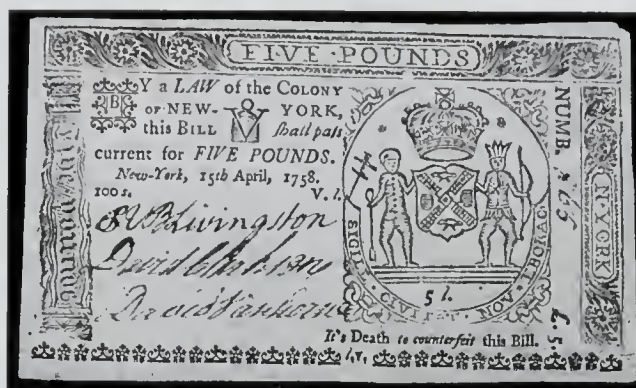 FIVE · POUNDS
BY a LAW of the COLONY
OF NEW- YORK,
this BILL V shall pass
current for FIVE POUNDS.
New-York, 15th April, 1758.
100 s. V. l.
Livingston
David Clarkson
David Vanhorne
SIGILL CIVITAT NOV EBORAC
5 l.
NUMB.
N·YORK
L. 5.
It's Death to counterfeit this Bill.
l,v,